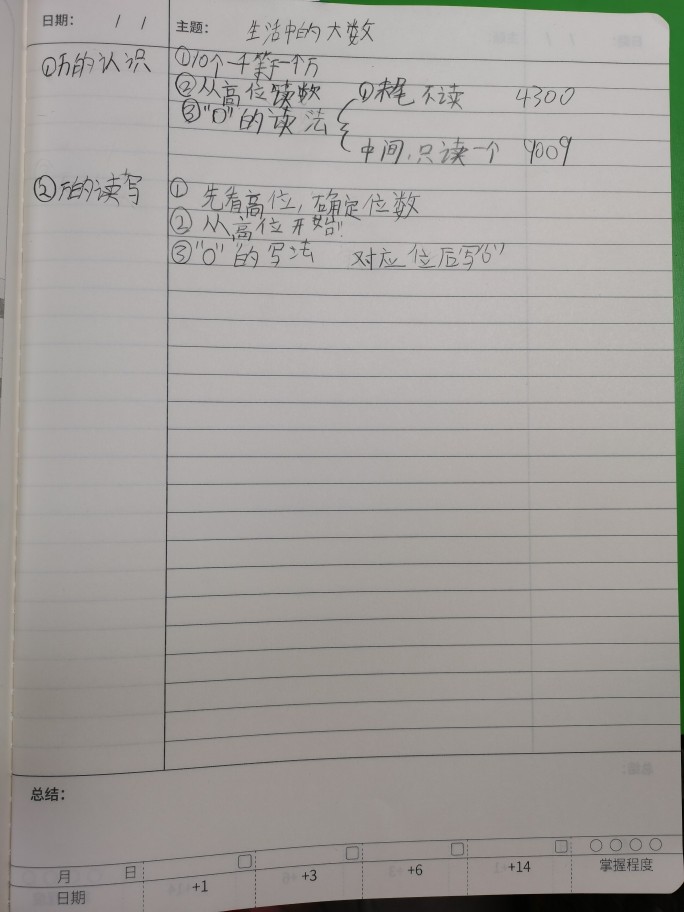 日期: / / 主题: 生活中的大数
①万的认识 ①10个一千等于一个万
②从高位读数 ①末尾不读 4300
③"0"的读法
中间,只读一个 9009
②万的读写 ① 先看高位,确定位数
② 从高位开始!
③"0"的写法 对应位后写“0”
总结:
月 日
日期 +1 +3 +6 +14 掌握程度